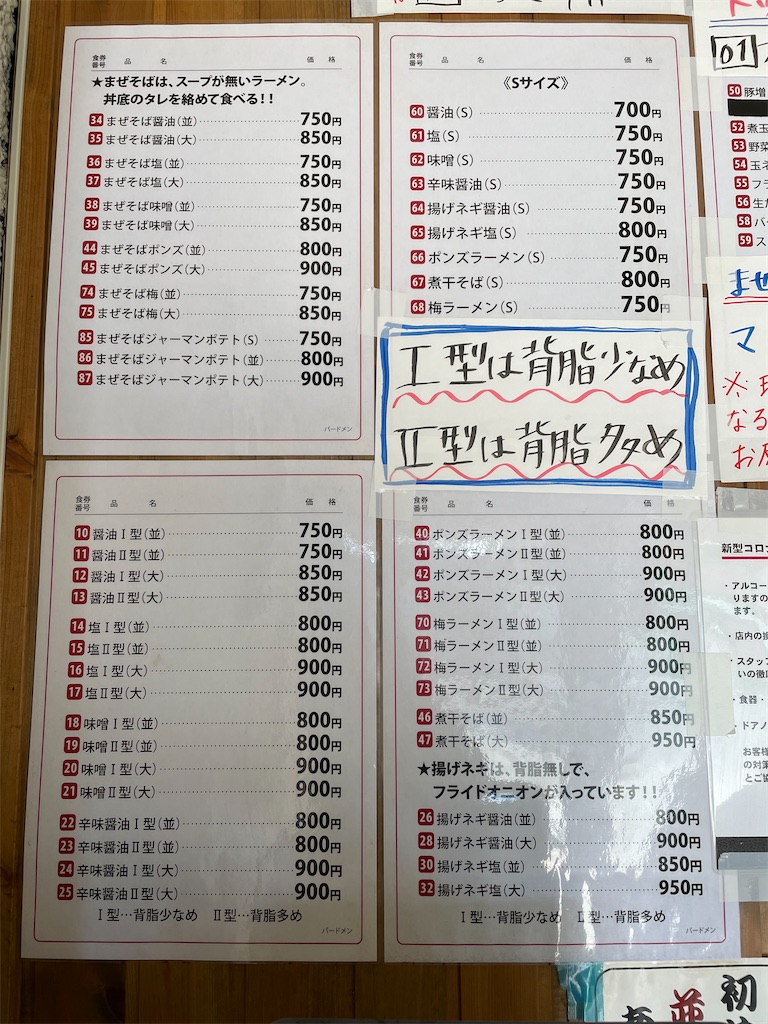 食券番号 品 名 価 格
★まぜそばは、スープが無いラーメン。
丼底のタレを絡めて食べる!!
34 まぜそば醤油(並) 750円
35 まぜそば醤油(大) 850円
36 まぜそば塩(並) 750円
37 まぜそば塩(大) 850円
38 まぜそば味噌(並) 750円
39 まぜそば味噌(大) 850円
44 まぜそばポンズ(並) 800円
45 まぜそばポンズ(大) 900円
74 まぜそば梅(並) 750円
75 まぜそば梅(大) 850円
85 まぜそばジャーマンポテト(S) 750円
86 まぜそばジャーマンポテト(並) 800円
87 まぜそばジャーマンポテト(大) 900円
バードメン
食券番号 品 名 価 格
《Sサイズ》
60 醤油(S) 700円
61 塩(S) 750円
62 味噌(S) 750円
63 辛味醤油(S) 750円
64 揚げネギ醤油(S) 750円
65 揚げネギ塩(S) 800円
66 ポンズラーメン(S) 750円
67 煮干そば(S) 800円
68 梅ラーメン(S) 750円
Ⅰ型は背脂少なめ
Ⅱ型は背脂多め
食券番号 品 名 価 格
10 醤油Ⅰ型(並) 750円
11 醤油Ⅱ型(並) 750円
12 醤油Ⅰ型(大) 850円
13 醤油Ⅱ型(大) 850円
14 塩Ⅰ型(並) 800円
15 塩Ⅱ型(並) 800円
16 塩Ⅰ型(大) 900円
17 塩Ⅱ型(大) 900円
18 味噌Ⅰ型(並) 800円
19 味噌Ⅱ型(並) 800円
20 味噌Ⅰ型(大) 900円
21 味噌Ⅱ型(大) 900円
22 辛味醤油Ⅰ型(並) 800円
23 辛味醤油Ⅱ型(並) 800円
24 辛味醤油Ⅰ型(大) 900円
25 辛味醤油Ⅱ型(大) 900円
Ⅰ型…背脂少なめ Ⅱ型…背脂多め
バードメン
食券番号 品 名 価 格
40 ポンズラーメンⅠ型(並) 800円
41 ポンズラーメンⅡ型(並) 800円
42 ポンズラーメンⅠ型(大) 900円
43 ポンズラーメンⅡ型(大) 900円
70 梅ラーメンⅠ型(並) 800円
71 梅ラーメンⅡ型(並) 800円
72 梅ラーメンⅠ型(大) 900円
73 梅ラーメンⅡ型(大) 900円
46 煮干そば(並) 850円
47 煮干そば(大) 950円
★揚げネギは、背脂無しで、
フライドオニオンが入っています!!
26 揚げネギ醤油(並) 800円
28 揚げネギ醤油(大) 900円
30 揚げネギ塩(並) 850円
32 揚げネギ塩(大) 950円
Ⅰ型…背脂少なめ Ⅱ型…背脂多め
バードメン
01
50 豚増
52 煮玉
53 野菜
54 玉ネ
55 フラ
56 生た
58 バ
59 ス
まぜ
マ
なる
新型コロナ
・アルコー
りますの
ます。
・店内の
・スタッフ
いの徹
・食器・
・ドアノ
お客様
の対策
とご協
初
並